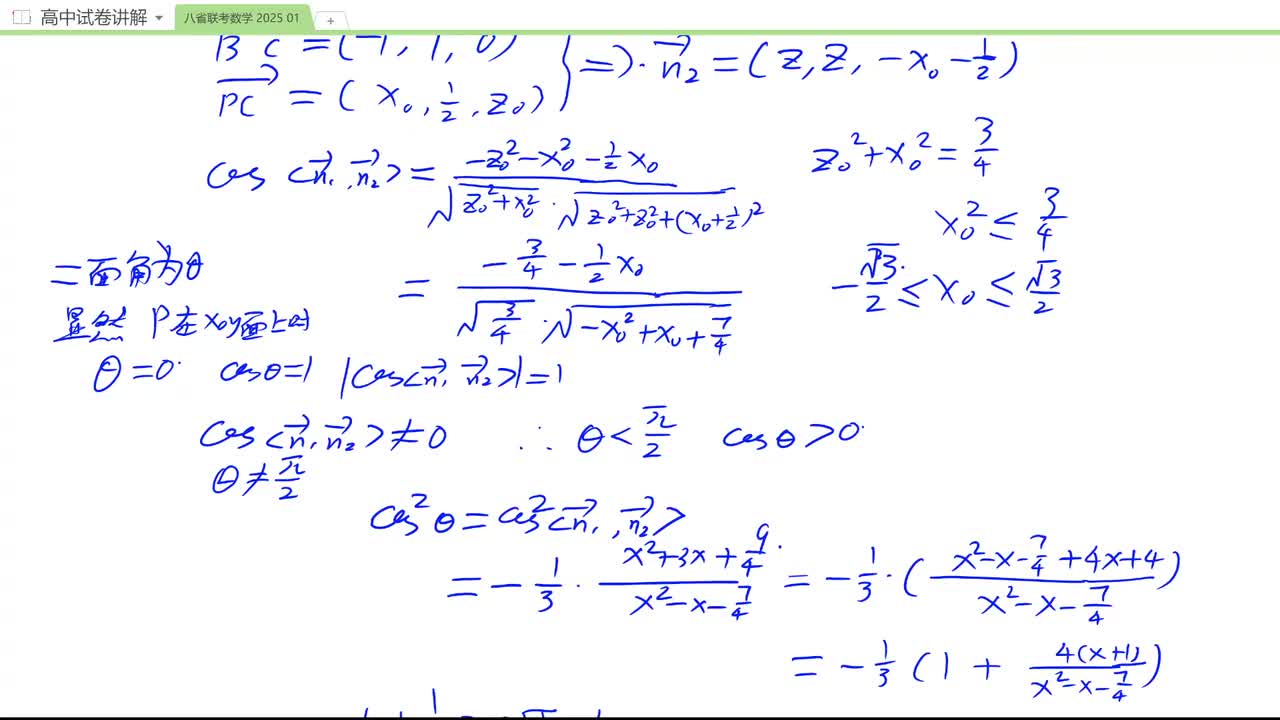 高中试卷讲解 八省联考数学 2025 01 +
BC = (-1, 1, 0)
PC→ = (x₀, 1/2, z₀) } ⇒ n₂→ = (z, z, -x₀ - 1/2)
cos<n₁→, n₂→> = (-z₀² - x₀² - 1/2 x₀) / (√(z₀²+x₀²) · √(z₀²+z₀²+(x₀+1/2)²)) z₀² + x₀² = 3/4
x₀² ≤ 3/4
= (-3/4 - 1/2 x₀) / (√(3/4) · √(-x₀²+x₀+7/4)) -√3/2 ≤ x₀ ≤ √3/2
二面角为θ
显然 P在xoy面上时
θ=0 cosθ=1 |cos<n₁→, n₂→>|=1
cos<n₁→, n₂→> ≠ 0 ∴ θ < π/2 cosθ > 0
θ ≠ π/2
cos²θ = cos²<n₁→, n₂→>
= -1/3 · (x²+3x+9/4) / (x²-x-7/4) = -1/3 · ((x²-x-7/4+4x+4) / (x²-x-7/4))
= -1/3 (1 + 4(x+1) / (x²-x-7/4))